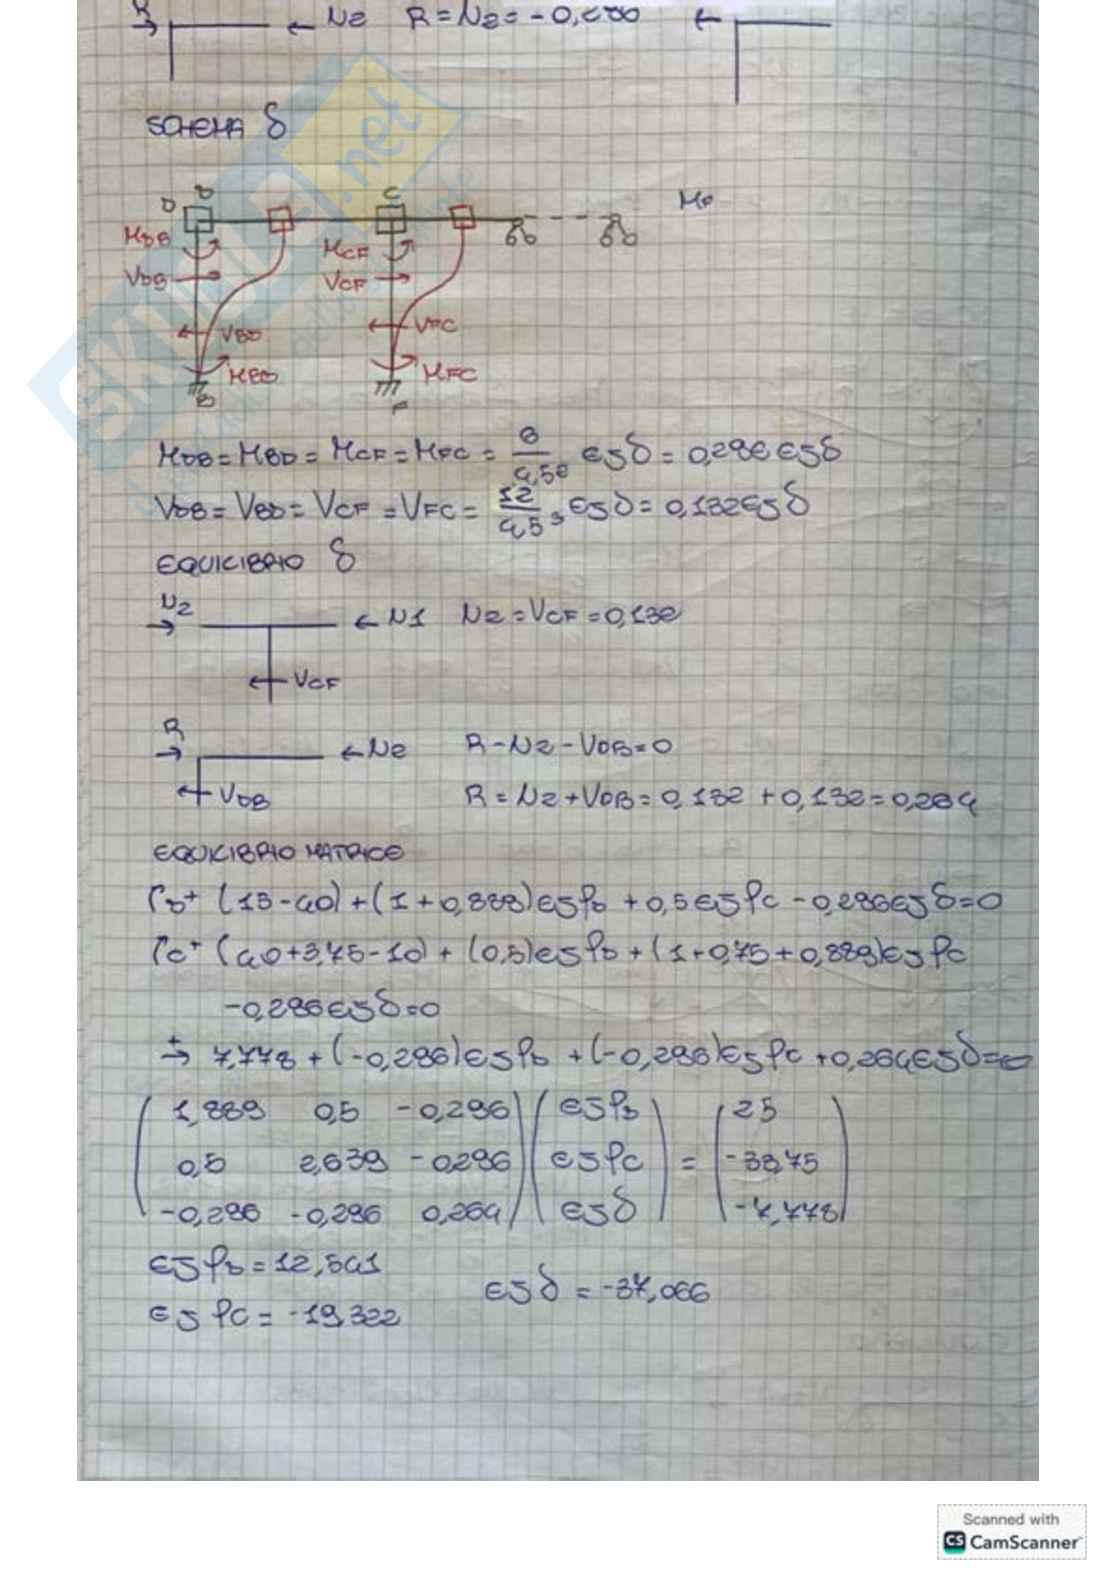 R → ← N2 R = N2 = -0,280 ←
SCHEMA δ
D C
MDB MCF
VDB VCF
VBD VFC
MBD MFC
B F
MDB = MBD = MCF = MFC = 6/4,5² EJδ = 0,296 EJδ
VDB = VBD = VCF = VFC = 12/4,5³ EJδ = 0,132 EJδ
EQUILIBRIO δ
N2 → ← N1 N2 = VCF = 0,132
← VCF
R → ← N2 R - N2 - VDB = 0
← VDB R = N2 + VDB = 0,132 + 0,132 = 0,264
EQUILIBRIO MATRICE
(15-40) + (1+0,889)EJφD + 0,5 EJφC - 0,296 EJδ = 0
(40+3,75-10) + (0,5)EJφD + (1+0,75+0,889)EJφC
-0,296 EJδ = 0
→+ 7,778 + (-0,296)EJφD + (-0,296)EJφC + 0,264 EJδ = 0
1,889 0,5 -0,296 EJφD = 25
0,5 2,639 -0,296 EJφC -33,75
-0,296 -0,296 0,264 EJδ -7,778
EJφD = 12,541
EJδ = -37,066
EJφC = -19,322
SKUOLA.net
Scanned with
CS CamScanner